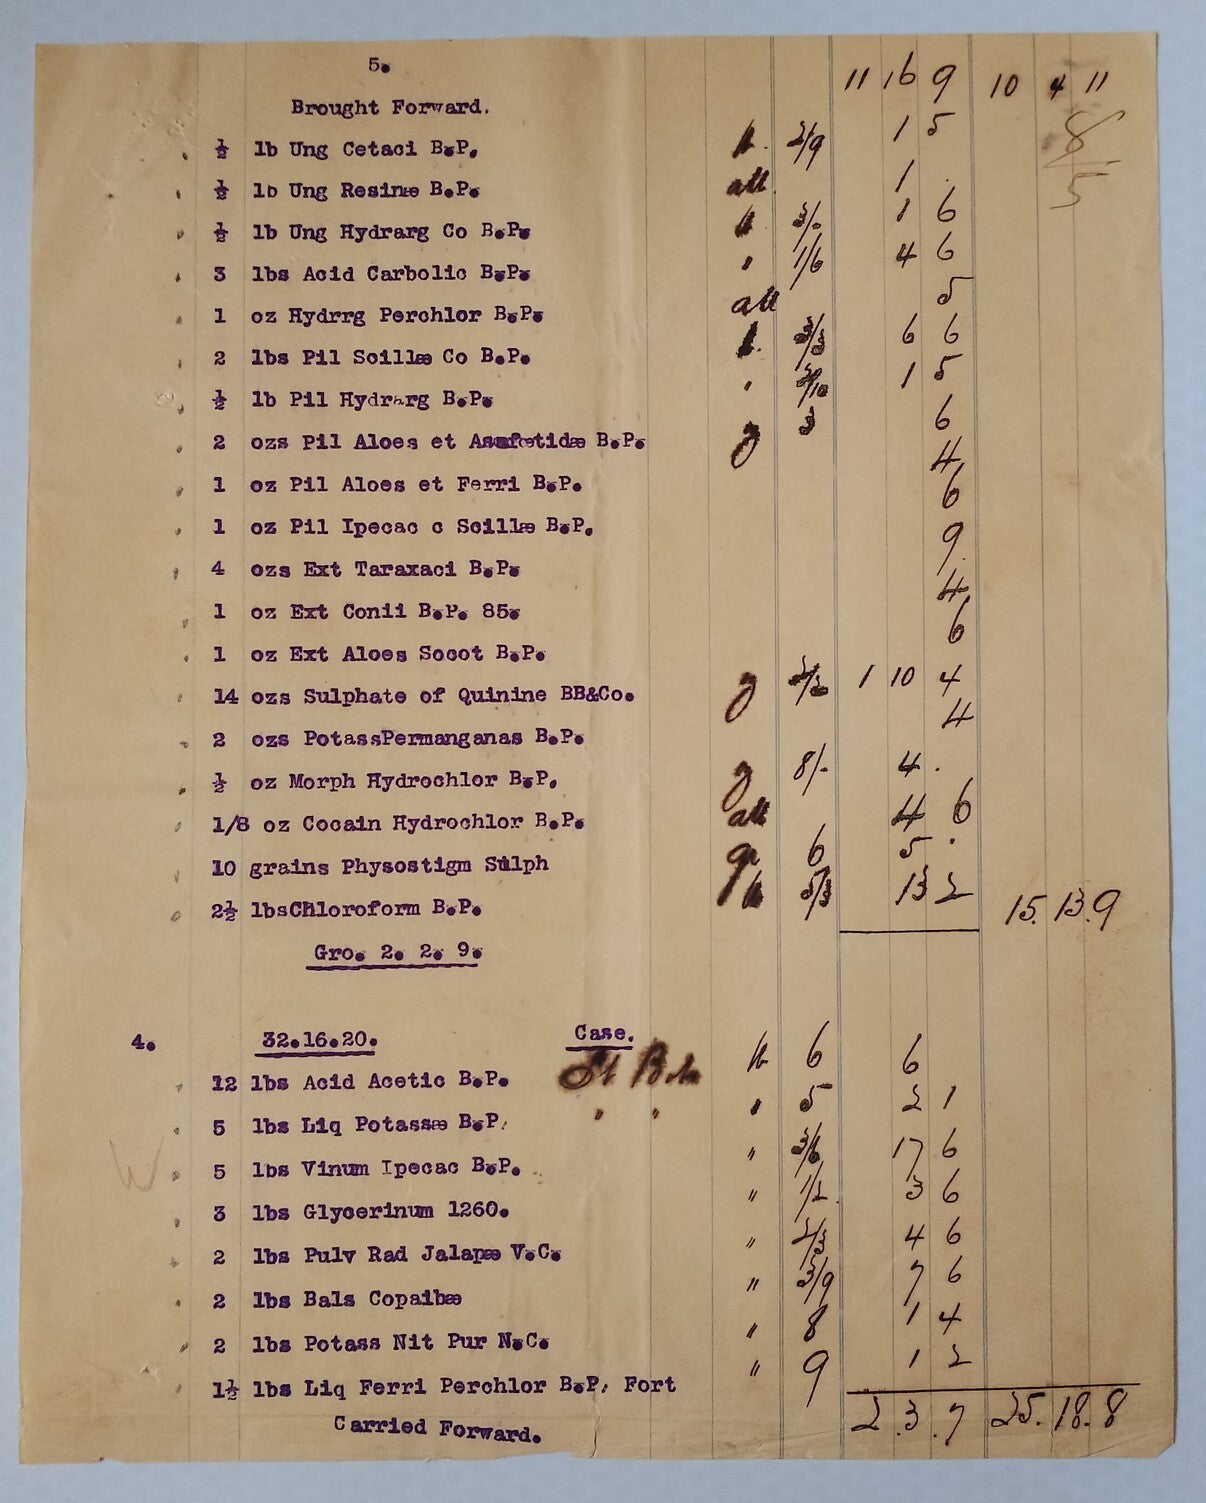 5.
11 16 9 10 4 11
Brought Forward.
½ lb Ung Cetaci B.P. lb. 2/9 1 5
½ lb Ung Resinæ B.P. all 1 .
½ lb Ung Hydrarg Co B.P. lb 3/- 1 6
3 lbs Acid Carbolic B.P. " 1/6 4 6
1 oz Hydrrg Perchlor B.P. all 5
2 lbs Pil Scillæ Co B.P. lb. 3/3 6 6
½ lb Pil Hydrarg B.P. " 2/10 1 5
2 ozs Pil Aloes et Asafœtidæ B.P. 3 6
1 oz Pil Aloes et Ferri B.P. 4
1 oz Pil Ipecac c Scillæ B.P. 6
4 ozs Ext Taraxaci B.P. 9
1 oz Ext Conii B.P. 85. 4
1 oz Ext Aloes Socot B.P. 6
14 ozs Sulphate of Quinine BB&Co. 2/2 1 10 4
2 ozs PotassPermanganas B.P. 4
½ oz Morph Hydrochlor B.P. 8/- 4 .
1/8 oz Cocain Hydrochlor B.P. all 4 6
10 grains Physostigm Sulph gr 6 5 .
2½ lbsChloroform B.P. lb 5/3 13 2 15. 13. 9
Gro. 2. 2. 9.
4. 32.16.20. Case.
12 lbs Acid Acetic B.P. lb 6 6
5 lbs Liq Potassæ B.P. " " " 5 2 1
5 lbs Vinum Ipecac B.P. " 3/6 17 6
3 lbs Glycerinum 1260. " 1/2 3 6
2 lbs Pulv Rad Jalapæ V.C. " 2/3 4 6
2 lbs Bals Copaibæ " 3/9 7 6
2 lbs Potass Nit Pur N.C. " 8 1 4
1½ lbs Liq Ferri Perchlor B.P. Fort " 9 1 2
Carried Forward. 2. 3. 7 25. 18. 8